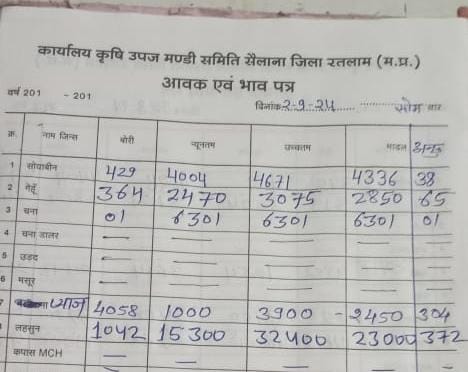 कार्यालय कृषि उपज मण्डी समिति सैलाना जिला रतलाम (म.प्र.)
आवक एवं भाव पत्र
वर्ष 201 - 201
दिनांक 2-9-24 सोम वार
क्र. नाम जिन्स बोरी न्यूनतम उच्चतम माडल
1 सोयाबीन 429 4004 4671 4336 38
2 गेहूँ 364 2470 3075 2850 65
3 चना 01 6301 6301 6301 01
4 चना डालर — — — —
5 उड़द — — — —
6 मसूर — — — —
7 प्याज 4058 1000 3900 - 2450 304
लहसुन 1042 15300 32400 23000 372
कपास MCH — — — —